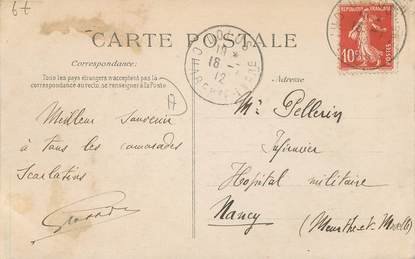 6f
CARTE POSTALE
Correspondance:
Tous les pays étrangers n'acceptent pas la
correspondance au recto, se renseigner à la Poste
Adresse
RÉPUBLIQUE FRANÇAISE
10c
POSTES
18 -
12
A
Meilleur Souvenir
à tous les camarades
Scarlatins
Mr Pellerin
Infirmier
Hopital militaire
Nancy
(Meurthe-et-Moselle)